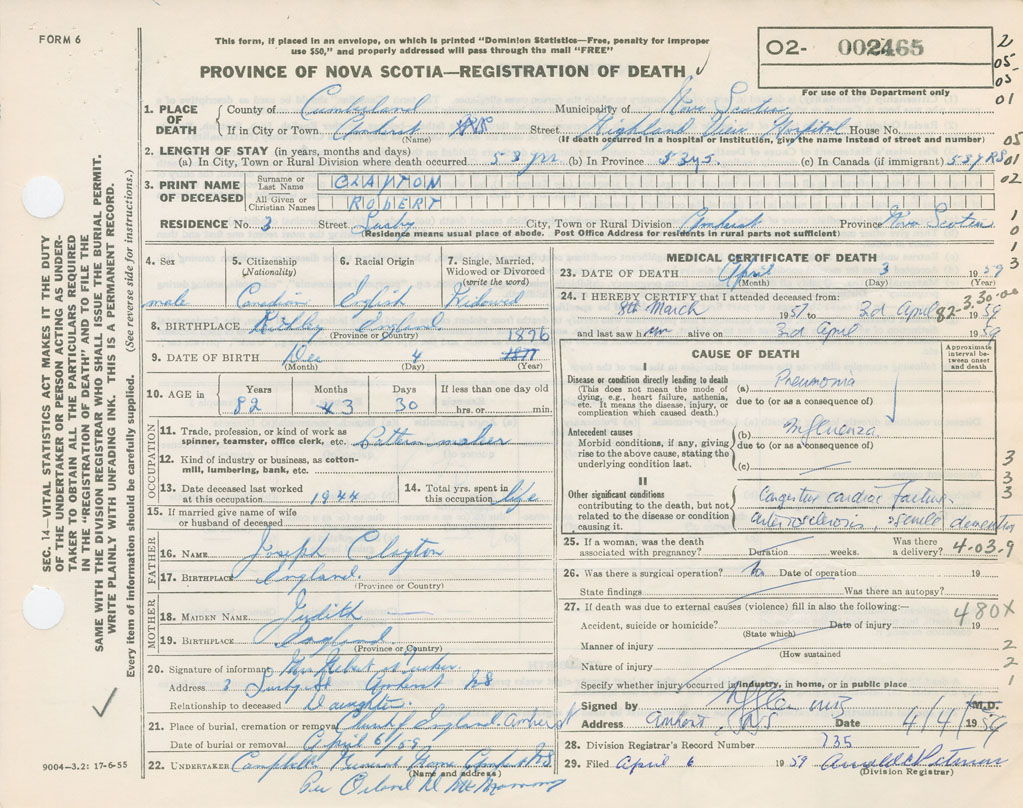 FORM 6
This form, if placed in an envelope, on which is printed "Dominion Statistics—Free, penalty for improper
use $50," and properly addressed will pass through the mail "FREE"
PROVINCE OF NOVA SCOTIA—REGISTRATION OF DEATH
O2- 002465
For use of the Department only
2
05-
03
01
05
01
02
1
0
1
3
1. PLACE OF DEATH
County of Cumberland Municipality of Nova Scotia
If in City or Town Amherst NS Street Highland View Hospital House No.
(Name) (If death occurred in a hospital or institution, give the name instead of street and number)
2. LENGTH OF STAY (in years, months and days)
(a) In City, Town or Rural Division where death occurred 58 yrs (b) In Province 58 yrs. (c) In Canada (if immigrant) 58 yRS
3. PRINT NAME OF DECEASED
Surname or Last Name CLAYTON
All Given or Christian Names ROBERT
RESIDENCE No. 3 Street Lusby City, Town or Rural Division Amherst Province Nova Scotia
(Residence means usual place of abode. Post Office Address for residents in rural parts not sufficient)
4. Sex
male
5. Citizenship
(Nationality)
Canadian
6. Racial Origin
English
7. Single, Married,
Widowed or Divorced
(write the word)
Widowed
8. BIRTHPLACE England
(Province or Country)
9. DATE OF BIRTH Dec 4 1876 1877
(Month) (Day) (Year)
10. AGE in
Years Months Days If less than one day old
82 3 30 hrs. or min.
OCCUPATION
11. Trade, profession, or kind of work as
spinner, teamster, office clerk, etc. Pattern maker
12. Kind of industry or business, as cotton-
mill, lumbering, bank, etc.
13. Date deceased last worked
at this occupation 1944
14. Total yrs. spent in
this occupation life
15. If married give name of wife
or husband of deceased
FATHER
16. NAME Joseph Clayton
17. BIRTHPLACE England.
(Province or Country)
MOTHER
18. MAIDEN NAME Judith
19. BIRTHPLACE England
(Province or Country)
20. Signature of informant Mrs Tucker.
Address 3 Lusby st Amherst NS
Relationship to deceased Daughter.
21. Place of burial, cremation or removal Church of England. Amherst
Date of burial or removal April 6/59
22. UNDERTAKER Campbells Funeral Home Amherst NS.
(Name and address)
Per
9004-3.2: 17-6-55
MEDICAL CERTIFICATE OF DEATH
23. DATE OF DEATH April 3 1959
(Month) (Day) (Year)
24. I HEREBY CERTIFY that I attended deceased from:
8th March 1957 to 3rd April 1959
82-3.30-00
and last saw him alive on 3rd April 1959
CAUSE OF DEATH
Approximate
interval be-
tween onset
and death
I
Disease or condition directly leading to death
(This does not mean the mode of
dying, e.g., heart failure, asthenia,
etc. It means the disease, injury, or
complication which caused death.)
(a) Pneumonia
due to (or as a consequence of)
Antecedent causes
Morbid conditions, if any, giving
rise to the above cause, stating the
underlying condition last.
(b) Influenza
due to (or as a consequence of)
(c)
II
Other significant conditions
contributing to the death, but not
related to the disease or condition
causing it.
Congestive cardiac failure
arteriosclerosis, senile dementia
3
3
3
25. If a woman, was the death
associated with pregnancy? Duration weeks. Was there
a delivery? 4-03.9
26. Was there a surgical operation? No Date of operation 19
State findings Was there an autopsy?
27. If death was due to external causes (violence) fill in also the following:—
480X
Accident, suicide or homicide? Date of injury 19
(State which)
Manner of injury 2
(How sustained
Nature of injury 2
Specify whether injury occurred in industry, in home, or in public place 1
Signed by M.D.
Address Amherst, NS Date 4/4/ 1959
28. Division Registrar's Record Number 735
29. Filed April 6 1959
(Division Registrar)
SEC. 14—VITAL STATISTICS ACT MAKES IT THE DUTY
OF THE UNDERTAKER OR PERSON ACTING AS UNDER-
TAKER TO OBTAIN ALL THE PARTICULARS REQUIRED
IN THE "REGISTRATION OF DEATH" AND FILE THE
SAME WITH THE DIVISION REGISTRAR WHO SHALL ISSUE THE BURIAL PERMIT.
WRITE PLAINLY WITH UNFADING INK. THIS IS A PERMANENT RECORD.
Every item of information should be carefully supplied. (See reverse side for instructions.)